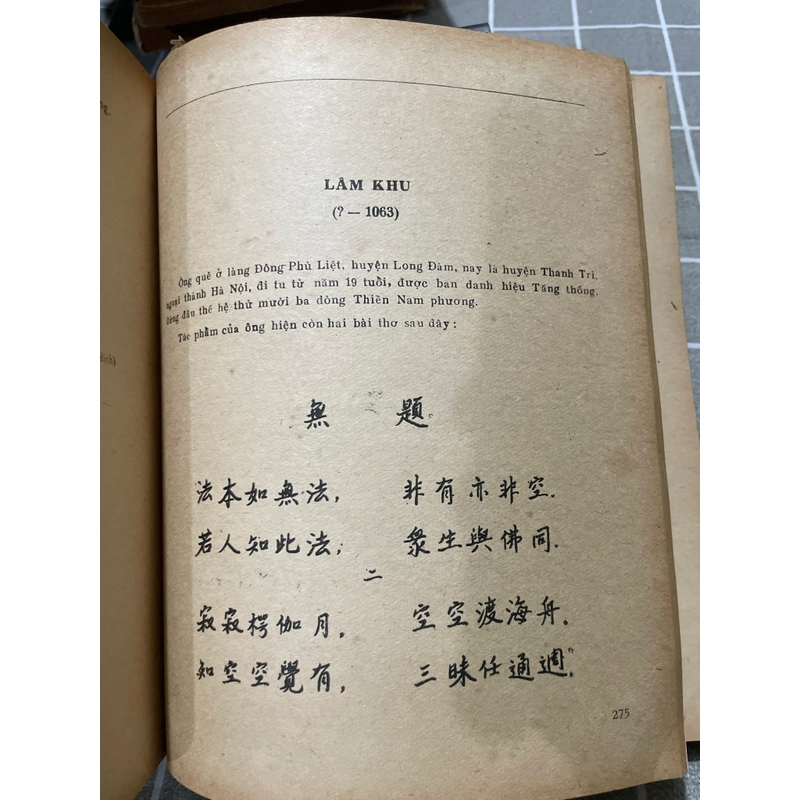 ng.
dịch)
LÂM KHU
(? — 1063)
Ông quê ở làng Đông Phù Liệt, huyện Long Đàm, nay là huyện Thanh Trì,
ngoại thành Hà Nội, đi tu từ năm 19 tuổi, được ban danh hiệu Tăng thống,
đứng đầu thế hệ thứ mười ba dòng Thiền Nam phương.
Tác phẩm của ông hiện còn hai bài thơ sau đây :
無 題。
法本如無法， 非有亦非空．
若人知此法； 衆生與佛同．
二
寂寂楞伽月， 空空渡海舟．
知空空覺有， 三昧任通週．
275